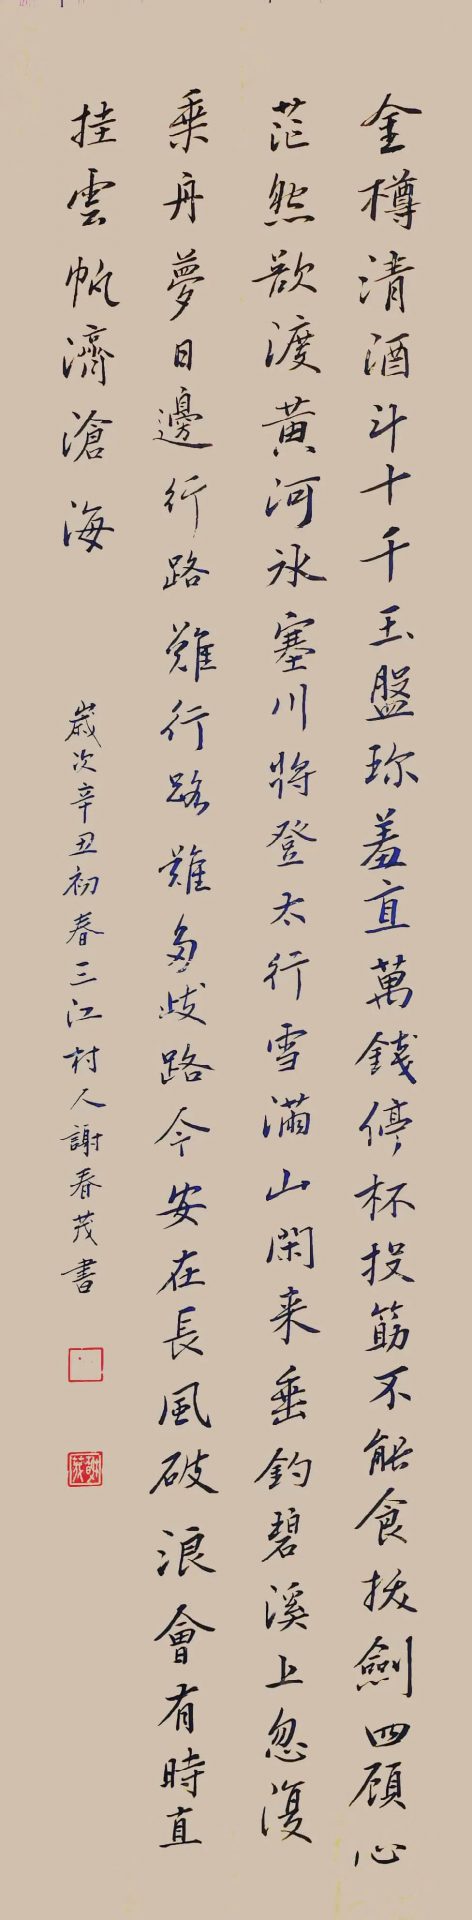 金樽清酒斗十千玉盤珎羞直萬錢停杯投筯不能食拔劍四顧心
茫然欲渡黄河冰塞川將登太行雪滿山閑来垂釣碧溪上忽復
乘舟夢日邊行路難行路難多歧路今安在長風破浪會有時直
挂雲帆濟滄海
歲次辛丑初春三江村人謝春茂書